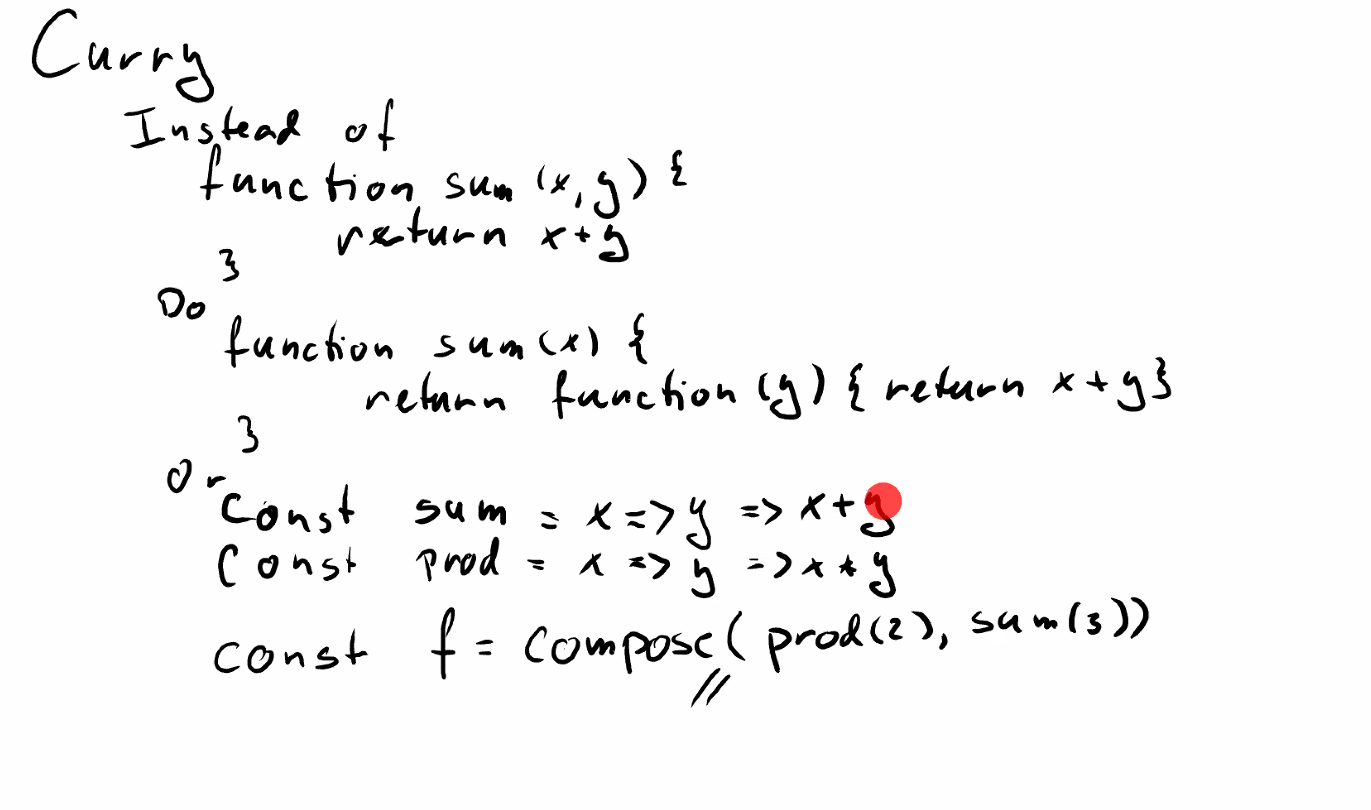 Curry
Instead of
function sum (x, y) {
return x + y
}
Do
function sum (x) {
return function (y) { return x + y }
}
Or
Const sum = x => y => x + y
Const prod = x => y => x * y
const f = compose( prod(2), sum(3))